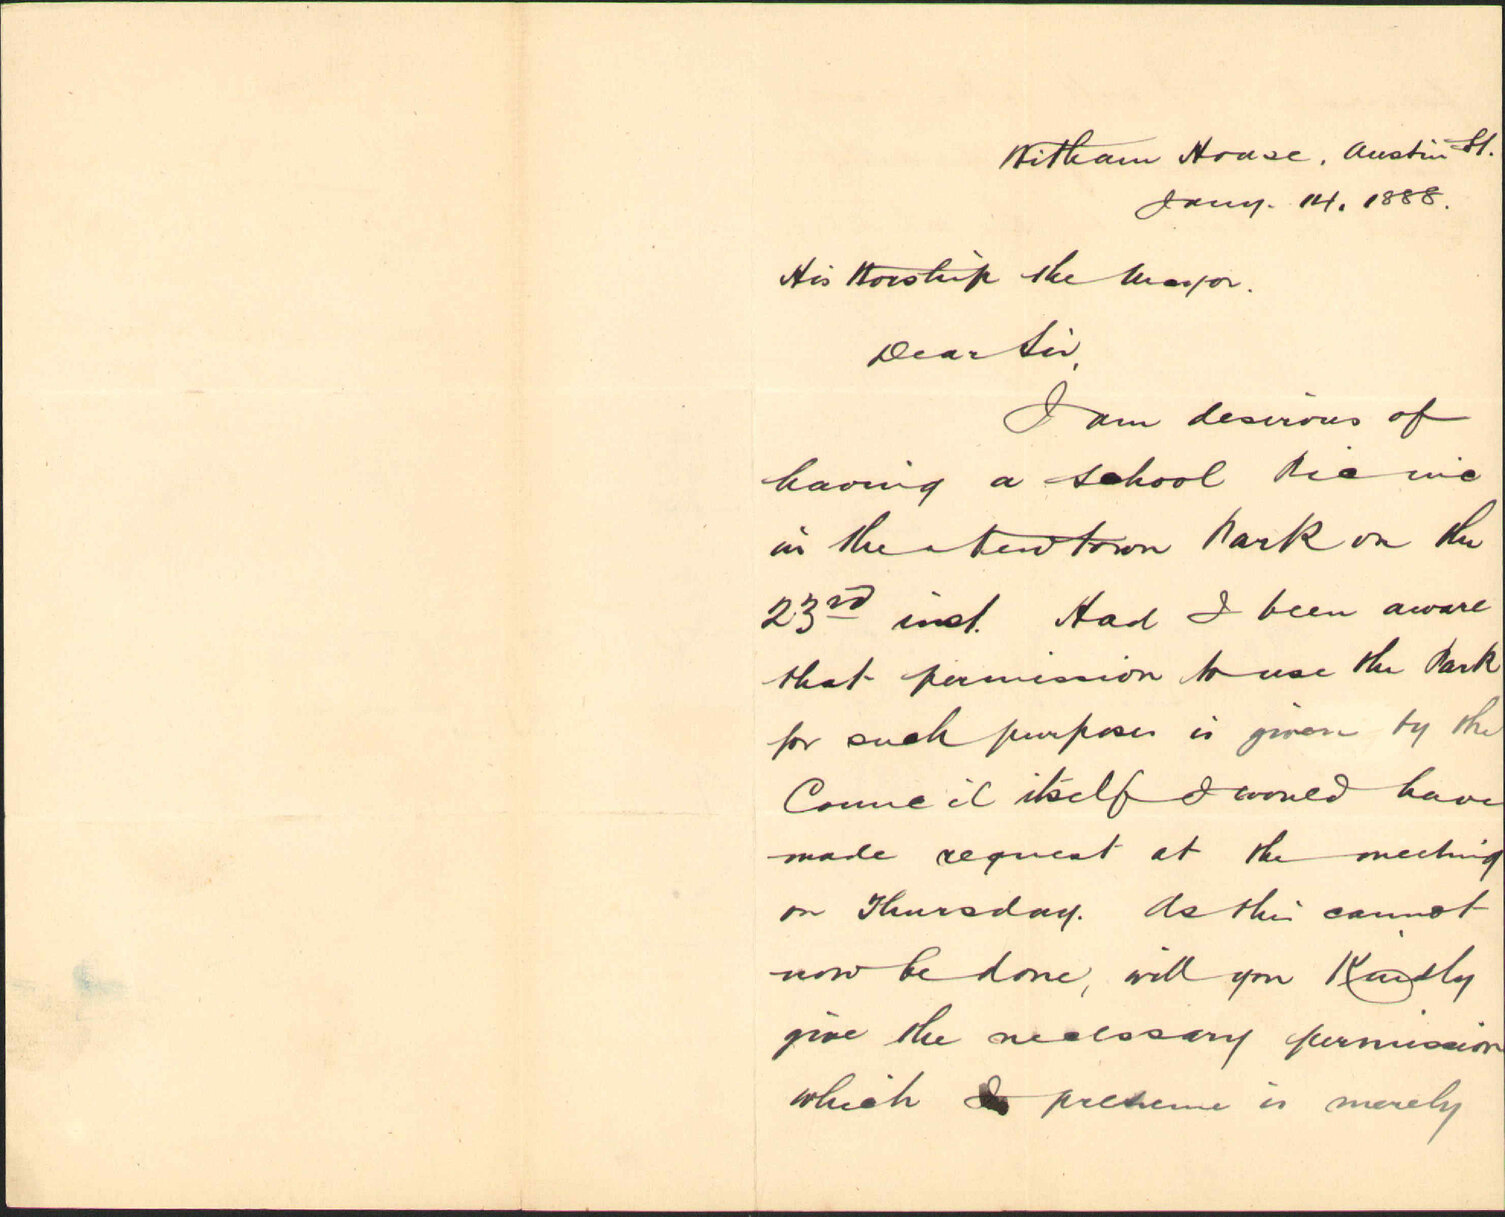 Witham House, Austin St.
Jany. 14. 1888.
His Worship the Mayor.
Dear Sir,
I am desirous of
having a school Picnic
in the Newtown Park on the
23rd inst. Had I been aware
that permission to use the Park
for such purposes is given by the
Council itself I would have
made request at the meeting
on Thursday. As this cannot
now be done, will you Kindly
give the necessary permission
which I presume is merely